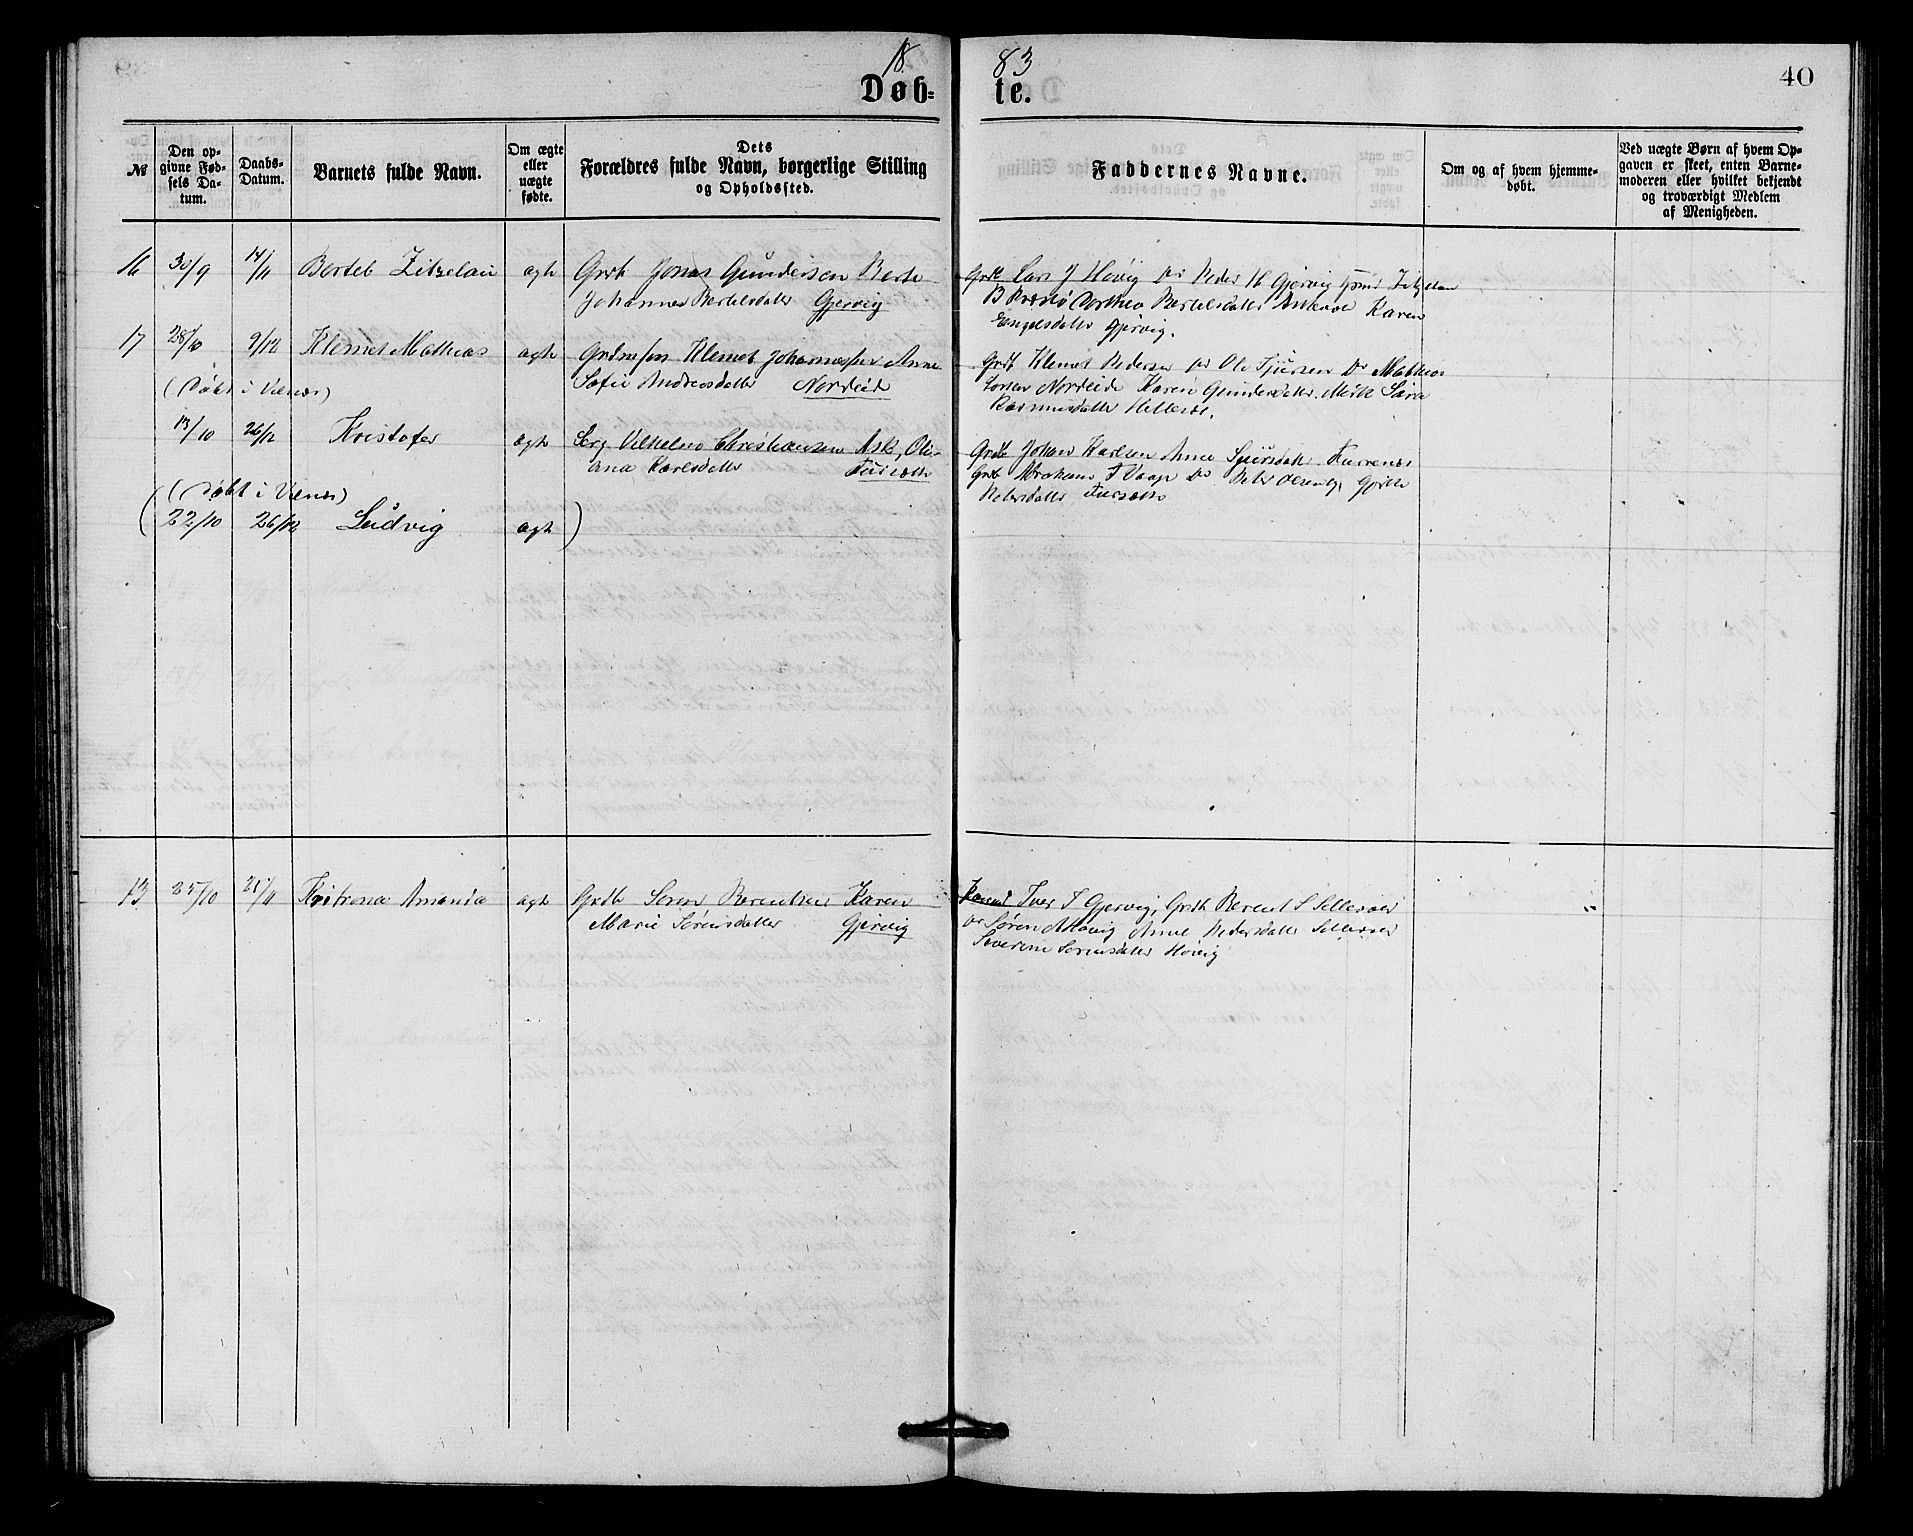 18 83
40
Døb- te.
№
Den op-
givne Fød-
sels Da-
tum.
Daabs-
Datum.
Barnets fulde Navn.
Om ægte
eller
uægte
fødte.
Dets
Forældres fulde Navn, borgerlige Stilling
og Opholdssted.
Faddernes Navne.
Om og af hvem hjemme-
døbt.
Ved uægte Børn af hvem Op-
gaven er skeet, enten Barne-
moderen eller hvilket bekjendt
og troværdigt Medlem
af Menigheden.
16 30/9 14/11 Bertel Zitzelau ægte Grdb Jonas Gundersen Berte
Johanna Bertelsdatter Gjervig
Grdb Lars J Høvig Peder H Gjervig
B Dorthea Bertelsdatter Karen
Engelsdatter Gjervig.
17 28/10 9/12 Klemet Mathias ægte Klemet Johannessen Anne
(Døbt i Valnæs) Sofie Andreasdatter Nordeide
Grdb Klemet Pedersen Ole Sjursen Do Mathias
Nordeide Karen Gundersdatter Sara
Rasmusdatter
13/10 26/12 Kristofer ægte Vilhelm Christiansen Ask, Oli-
ana Karlsdatter
Grdb Johan Karlsen Anne Sjursdatter
Grdb Abraham Do Peter Olsen
Petersdatter
(Døbt i Valnæs)
(22/10 26/12 Ludvig ægte )
13 25/10 25/11 Amanda ægte Grdb Søren Berentsen Karen
Marie Sørensdatter Gjervig
Iver I Gjervig, Grdb Berent S Sellevold
Søren A Høvig Anne Pedersdatter
Severine Sørensdatter Høvig